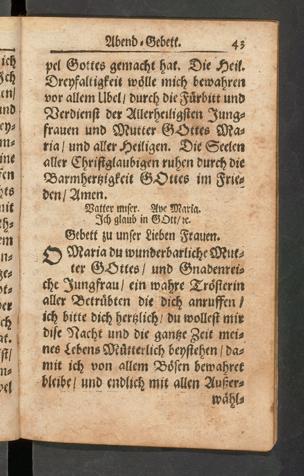 Abend-Gebett. 43
pel Gottes gemacht hat. Die Heil.
Dreyfaltigkeit wölle mich bewahren
vor allem Ubel/ durch die Fürbitt und
Verdienst der Allerheiligsten Jung-
frauen und Mutter GOttes Ma-
ria/ und aller Heiligen. Die Seelen
aller Christglaubigen ruhen durch die
Barmhertzigkeit GOttes im Frie-
den/ Amen.
Vatter unser. Ave Maria.
Ich glaub in GOtt/ ꝛc.
Gebett zu unser Lieben Frauen.
O Maria du wunderbarliche Mut-
ter GOttes/ und Gnadenrei-
che Jungfrau/ ein wahre Trösterin
aller Betrübten die dich anruffen/
ich bitte dich hertzlich/ du wollest mir
dise Nacht und die gantze Zeit mei-
nes Lebens Mütterlich beystehen/ da-
mit ich von allem Bösen bewahret
bleibe/ und endlich mit allen Außer-
wähl-